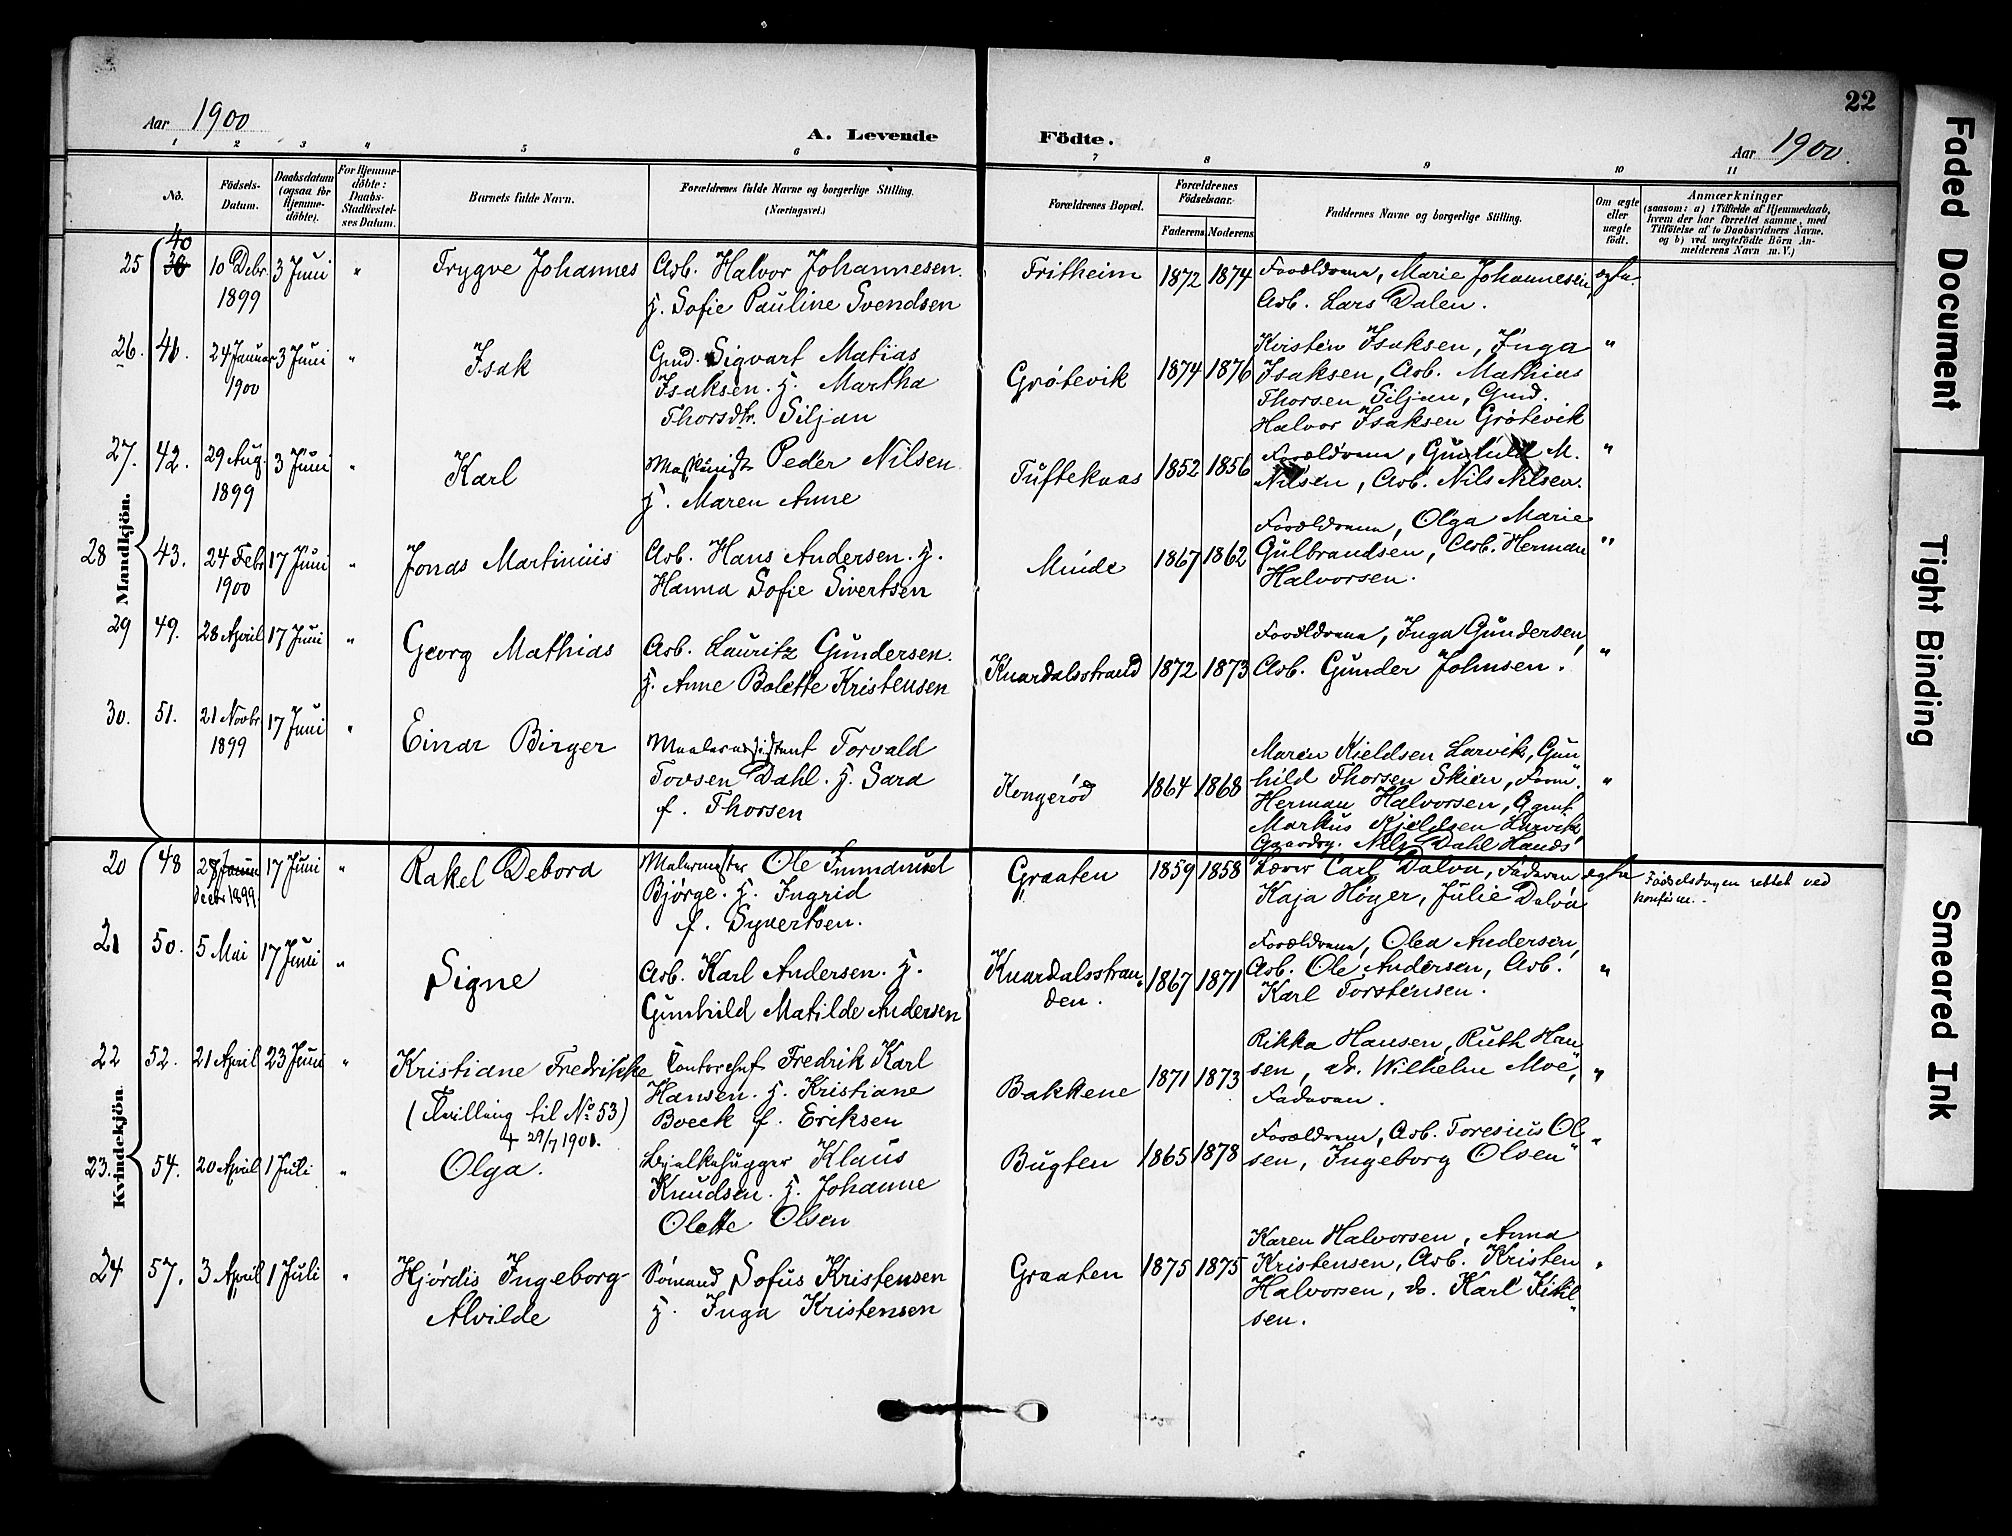 22
Aar 1900
A. Levende Födte.
Aar 1900.
1 2 3 4 5 6 7 8 9 10 11
No.
Födsels-Datum.
Daabsdatum (ogsaa for Hjemme-döbte).
For Hjemme-döbte: Daabs-Stadfæstel-ses Datum.
Barnets fulde Navn.
Forældrenes fulde Navne og borgerlige Stilling.
(Næringsvei.)
Forældrenes Bopæl.
Forældrenes Födselsaar.
Faderens Moderens
Faddernes Navne og borgerlige Stilling.
Om ægte eller uægte födt.
Anmærkninger
(saasom: a) i Tilfælde af Hjemmedaab,
hvem der har forrettet samme, med
Tilföielse af to Daabsvidners Navne,
og b) ved uægtefödte Börn An-
melderens Navn m. V.)
Mandkjön.
25 40 10 Debr. 1899 3 Juni " Trygve Johannes
Arb. Halvor Johannesen.
H. Sofie Pauline Svendsen
Fritheim 1872 1874
Forældrene, Marie Johannesen, ægte.
Arb. Lars Dalen.
26. 41. 24 Januar 1900 3 Juni " Isak
Gmd. Sigvart Matias
Isaksen. H. Martha
Thorsdtr. Siljan
Grötevik 1874 1876
Kirsten Isaksen, Inga "
Isaksen, Arb. Mathias
Thorsen Siljan, Gmd.
Halvor Isaksen Grötevik
27. 42. 29 Aug. 1899 3 Juni " Karl
Maskinist Peder Nilsen
H. Maren Anne
Tufteknas 1852 1856
Forældrene, Gunhild M. "
Nilsen, Arb. Nils Nilsen.
28 43. 24 Febr 1900 17 Juni " Jonas Martinius
Arb. Hans Andersen. H.
Hanna Sofie Sivertsen
Minde 1867 1862
Forældrene, Olga Marie
Gulbrandsen, Arb. Herman "
Halvorsen.
29 49. 28 April 17 Juni " Georg Mathias
Arb. Lauritz Gundersen.
H. Anne Bolette Kristensen
Knardalsstrand 1872 1873
Forældrene, Inga Gundersen,
Arb. Gunder Johnsen. "
30. 51. 21 Novbr 1899 17 Juni " Einar Birger
Maalerassistent Torvald
Tovsen Dahl. H. Sara
f. Thorsen
Kongeröd 1864 1868
Maren Kjeldsen Larvik, Gun
hild Thorsen Skien, Form. "
Herman Halvorsen, Agent
Markus Kjeldsen Larvik
Gaardbr. Nils Dahl
Kvindekjön.
20 48 28 Decbr 1899 17 Juni " Rakel Debora
Malermester Ole Immanuel
Björge. H. Ingrid
f. Syvertsen.
Graaten 1859 1858
Lærer Carl Dalva, Faderen ægte
Kaja Höyer, Julie Dalva
Födselsdagen rettet ved
konfirm.
21 50. 5 Mai 17 Juni " Signe
Arb. Karl Andersen. H.
Gunhild Matilde Andersen
Knardalsstran-
den. 1867 1871
Forældrene, Olea Andersen,
Arb. Ole Andersen, Arb. "
Karl Torstensen.
22 52. 21 April 23 Juni " Kristiane Fredrikke
(Tvilling til No 53)
+ 29/7 1901.
Contorchef Fredrik Karl
Hansen. H. Kristiane
Boeck f. Eriksen
Bakkene 1871 1873
Rikka Hansen, Ruth Han
sen, dr. Wilhelm Moe, "
Faderen.
23. 54. 20 April 1 Juli " Olga.
Bjelkehugger Klaus
Knudsen. H. Johanne
Olette Olsen
Bugten 1865 1878
Forældrene, Arb. Toresius Ol "
sen, Ingeborg Olsen
24 57. 3 April 1 Juli " Hjördis Ingeborg-
Alvilde
Sömand Sofus Kristensen
H. Inga Kristensen
Graaten 1875 1875
Karen Halvorsen, Anna
Kristensen, Arb. Kristen "
Halvorsen, do. Karl
sen.
Faded Document
Tight Binding
Smeared Ink